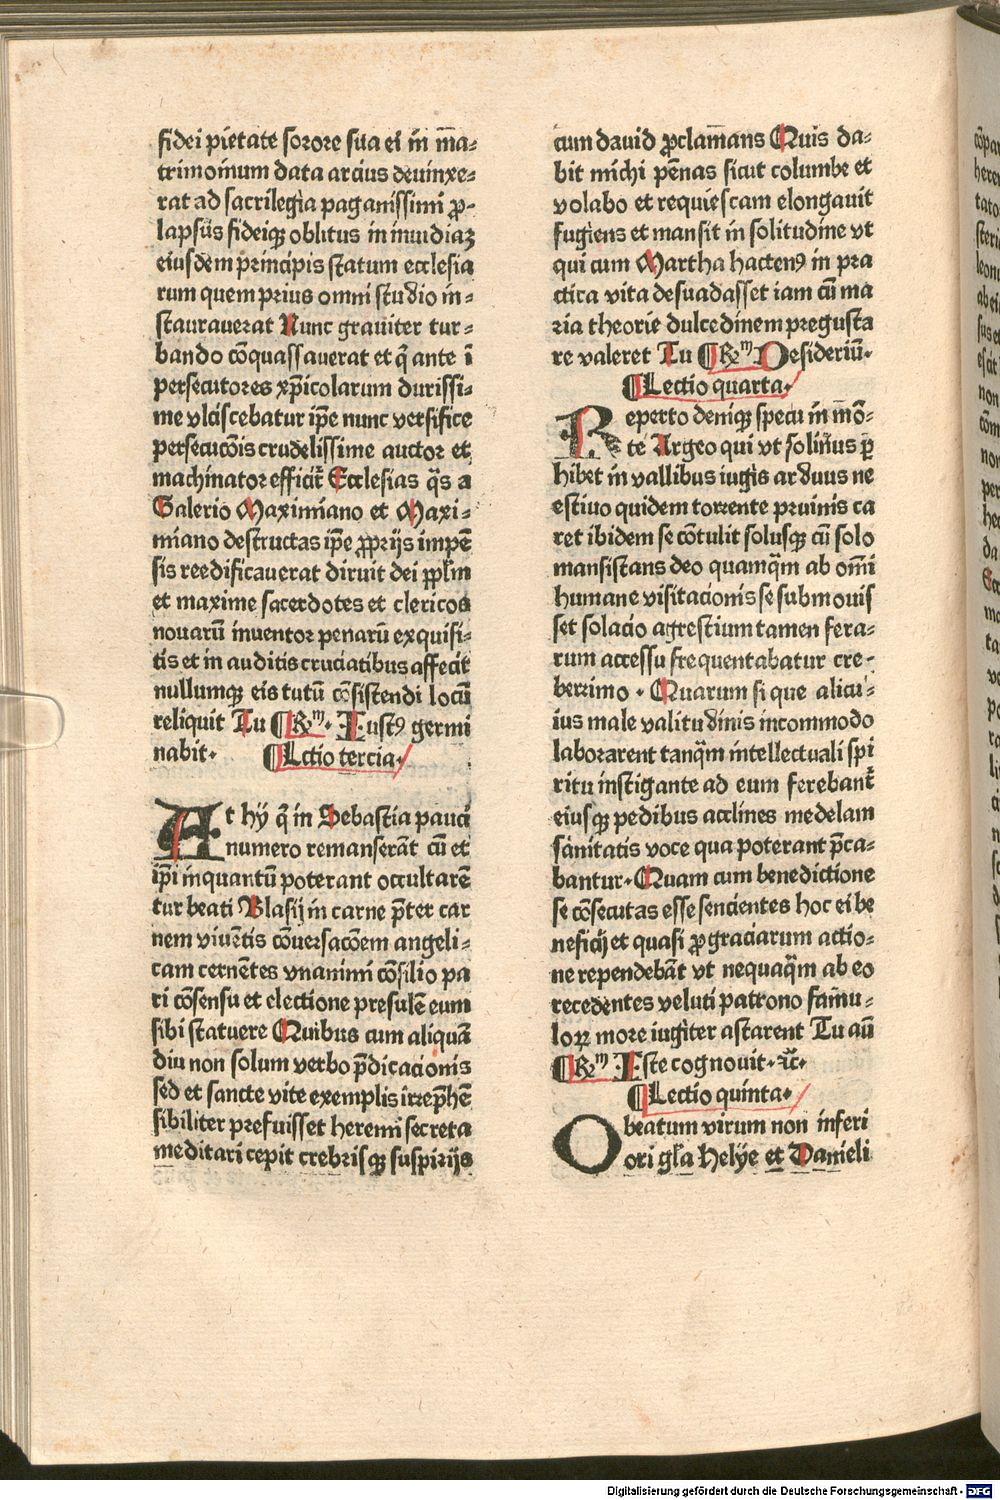 fidei pietate sorore sua ei in m̄a⸗
trimonium data arcius deuinxe⸗
rat ad sacrilegia paganissimi ꝓ⸗
lapsus fideiqꝫ oblitus in inuidiaꝫ
eiusdem principis statum ecclesia
rum quem prius omni studio in⸗
staurauerat Nunc grauiter tur⸗
bando cōquassauerat et q̄ ante ī
persecutores xp̄icolarum durissi⸗
me vlciscebatur ip̄e nunc versifice
persecucōis crudelissime auctor et
machinator efficit̄ Ecclesias q̄s a
Galerio Maximiano et Maxi⸗
miano destructas ip̄e ꝓprijs impē
sis reedificauerat diruit dei ppl̄m
et maxime sacerdotes et clericos
nouarū inuentor penarū exquisi⸗
tis et in auditis cruciatibus affecit
nullumqꝫ eis tutū cōsistendi locū
reliquit Tu ¶ Rm̄. Iustꝰ germi
nabit. ¶ Lctio tercia.
At hÿ q̄ in Sebastia pauci
numero remanserāt cū et
ip̄i inquantū poterant occultarē
tur beati Blasij in carne p̄ter car
nem viuētis cōuersacōem angeli⸗
cam cernētes vnanimi cōsilio pa
ri cōsensu et electione presulē eum
sibi statuere Quibus cum aliquā
diu non solum verbo p̄dicacionis
sed et sancte vite exemplis irrep̄hē
sibiliter prefuisset heremi secreta
meditari cepit crebrisqꝫ suspirijs
cum dauid ꝓclam̄ans Quis da⸗
bit michi pēnas sicut columbe et
volabo et requiescam elongauit
fugiens et mansit in solitudine vt
qui cum Martha hactenꝰ in pra
ctica vita desuadasset iam cū ma
ria theorie dulcedinem pregusta
re valeret Tu ¶ Rm̄ Desideriū.
¶ Lectio quarta.
Reperto deniqꝫ specu in mō⸗
te Argeo qui vt solinus p̄
hibet in vallibus iugis arduus ne
estiuo quidem torrente pruinis ca
ret ibidem se cōtulit solusqꝫ cū solo
mansistans deo quamq̄m ab om̄i
humane visitacionis se submouis
set solacio agrestium tamen fera⸗
rum accessu frequentabatur cre⸗
berrimo. Quarum si que alicu⸗
ius male valitudinis incommodo
laborarent tanq̄m intellectuali spi
ritu instigante ad eum ferebant̄
eiusqꝫ pedibus acclines medelam
sanitatis voce qua poterant p̄ca⸗
bantur. Quam cum benedictione
se cōsecutas esse sencientes hoc ei be
neficij et quasi ꝓ graciarum actio⸗
ne rependebāt vt nequaq̄m ab eo
recedentes veluti patrono famu⸗
loꝝ more iugiter astarent Tu aū
¶ Rm̄ Iste cognouit. ꝛc̄.
¶ Lectio quinta.
O beatum virum non inferi
ori gl̄a Helÿe et Danieli
Digitalisierung gefördert durch die Deutsche Forschungsgemeinschaft - DFG